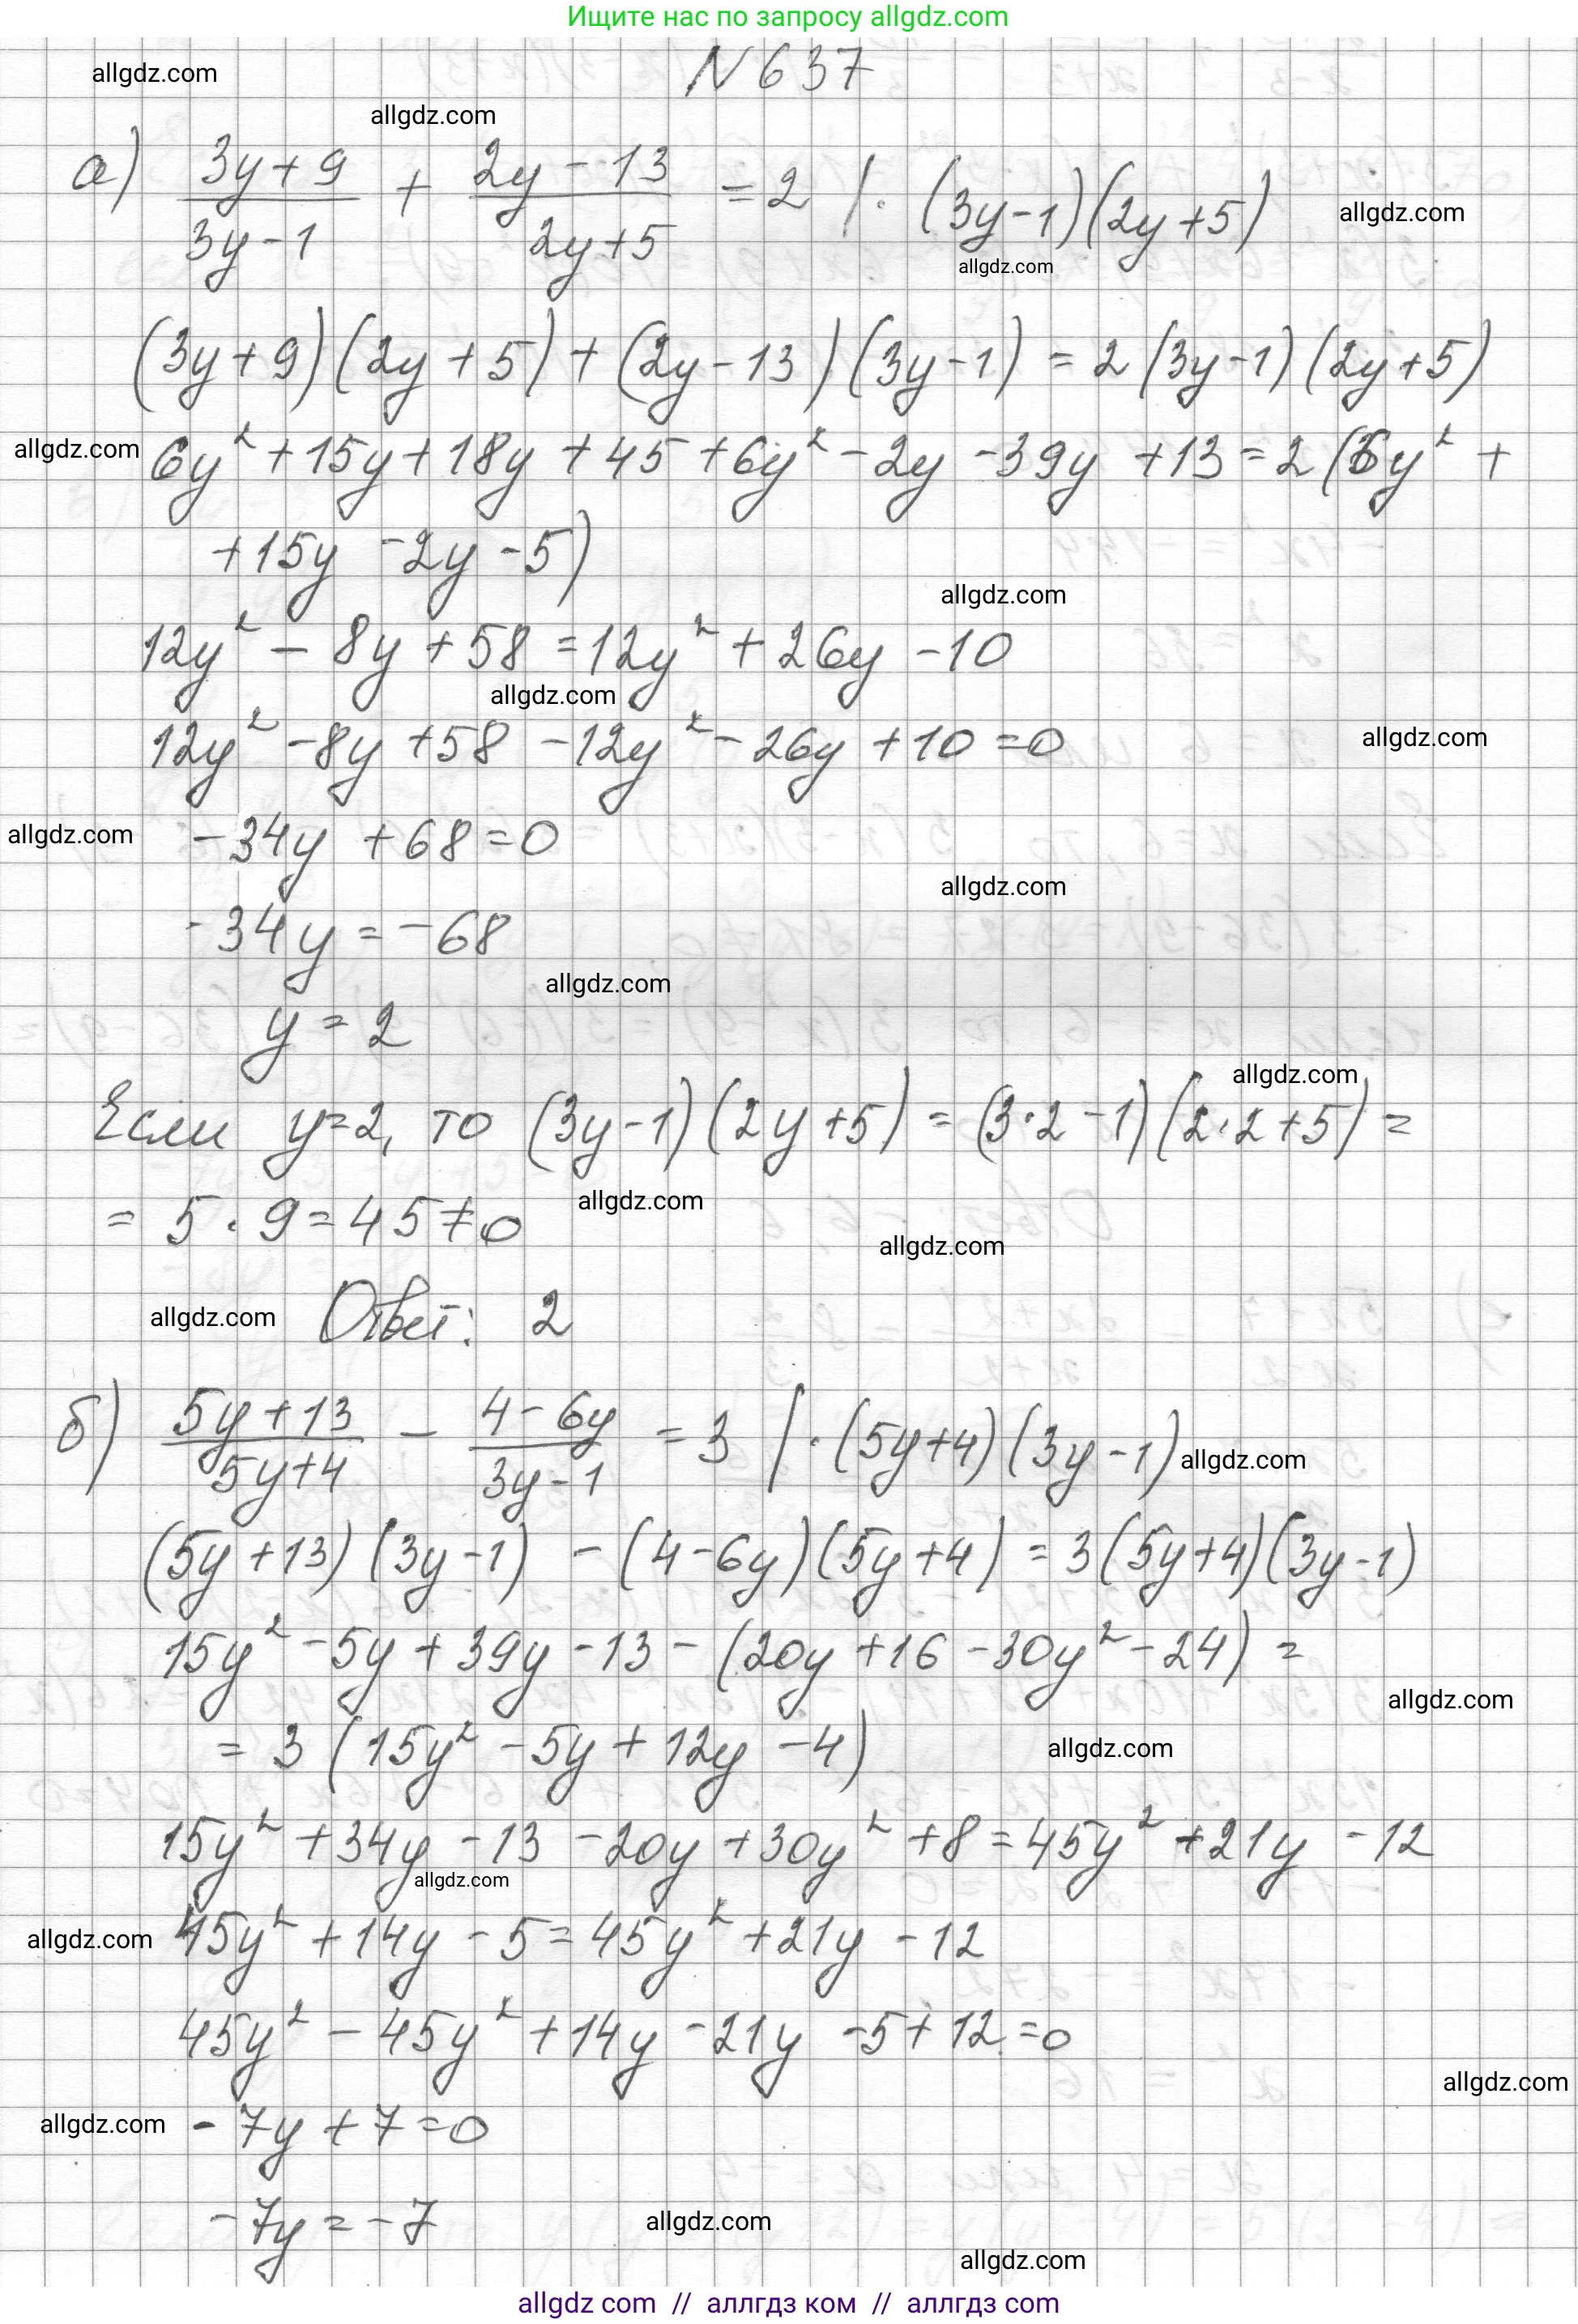 Ищите нас по запросу allgdz.com
N 637
allgdz.com
allgdz.com
а) (3y+9)/(3y-1) + (2y-13)/(2y+5) = 2 | · (3y-1)(2y+5)
allgdz.com
allgdz.com
(3y+9)(2y+5)+(2y-13)(3y-1) = 2(3y-1)(2y+5)
allgdz.com
6y²+15y+18y+45+6y²-2y-39y+13=2(6y²+
+15y-2y-5)
allgdz.com
12y²-8y+58=12y²+26y-10
allgdz.com
12y²-8y+58-12y²-26y+10=0
allgdz.com
allgdz.com
-34y+68=0
allgdz.com
-34y=-68
allgdz.com
y=2
allgdz.com
Если y=2, то (3y-1)(2y+5)=(3·2-1)(2·2+5)=
allgdz.com
=5·9=45≠0
allgdz.com
allgdz.com
Ответ: 2
б) (5y+13)/(5y+4) - (4-6y)/(3y-1) = 3 | · (5y+4)(3y-1)
allgdz.com
(5y+13)(3y-1)-(4-6y)(5y+4)=3(5y+4)(3y-1)
15y²-5y+39y-13-(20y+16-30y²-24)=
allgdz.com
=3(15y²-5y+12y-4)
allgdz.com
15y²+34y-13-20y+30y²+8=45y²+21y-12
allgdz.com
allgdz.com
45y²+14y-5=45y²+21y-12
45y²-45y²+14y-21y-5+12=0
allgdz.com
allgdz.com
-7y+7=0
-7y=-7
allgdz.com
allgdz.com
allgdz com // аллгдз ком // аллгдз com